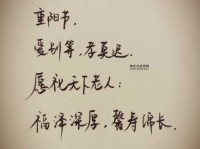 重阳节，
爱别等，孝莫迟．
愿祝天下老人：
福泽深厚，馨寿绵长．